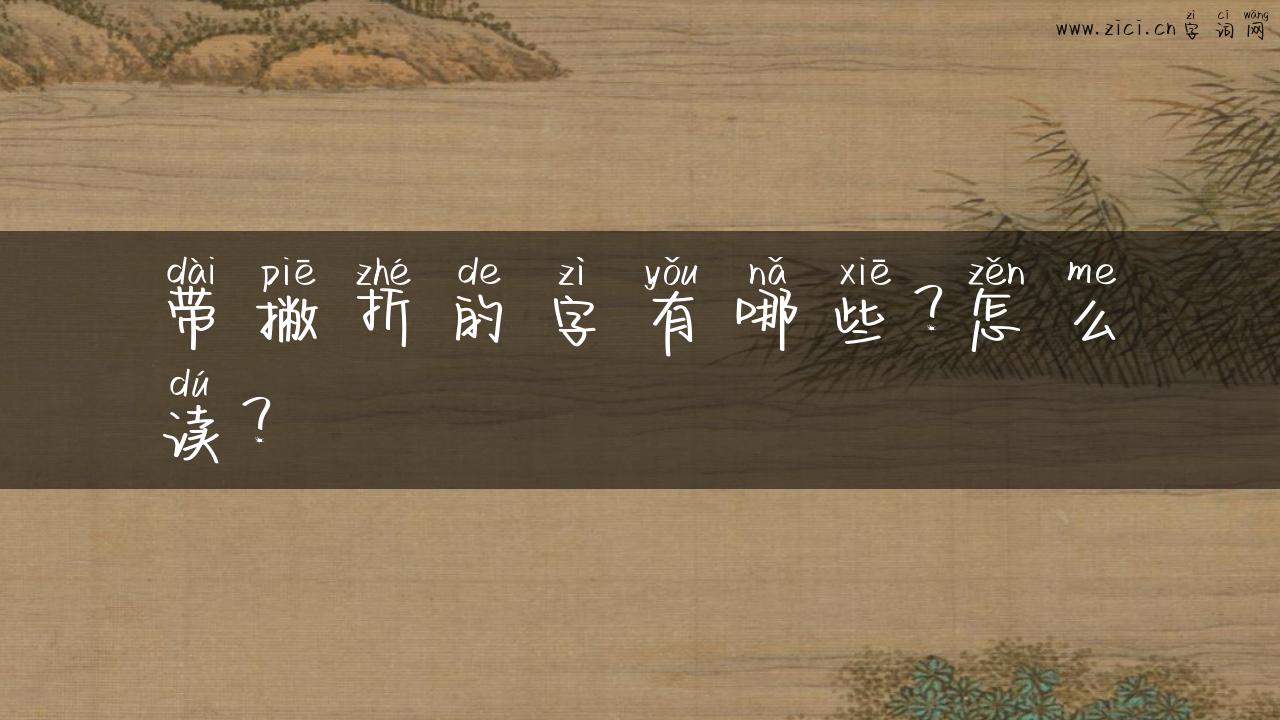 zì cí wǎng
www.zici.cn 字词网
dài piē zhé de zì yǒu nǎ xiē zěn me
带撇折的字有哪些？怎么
dú
读？